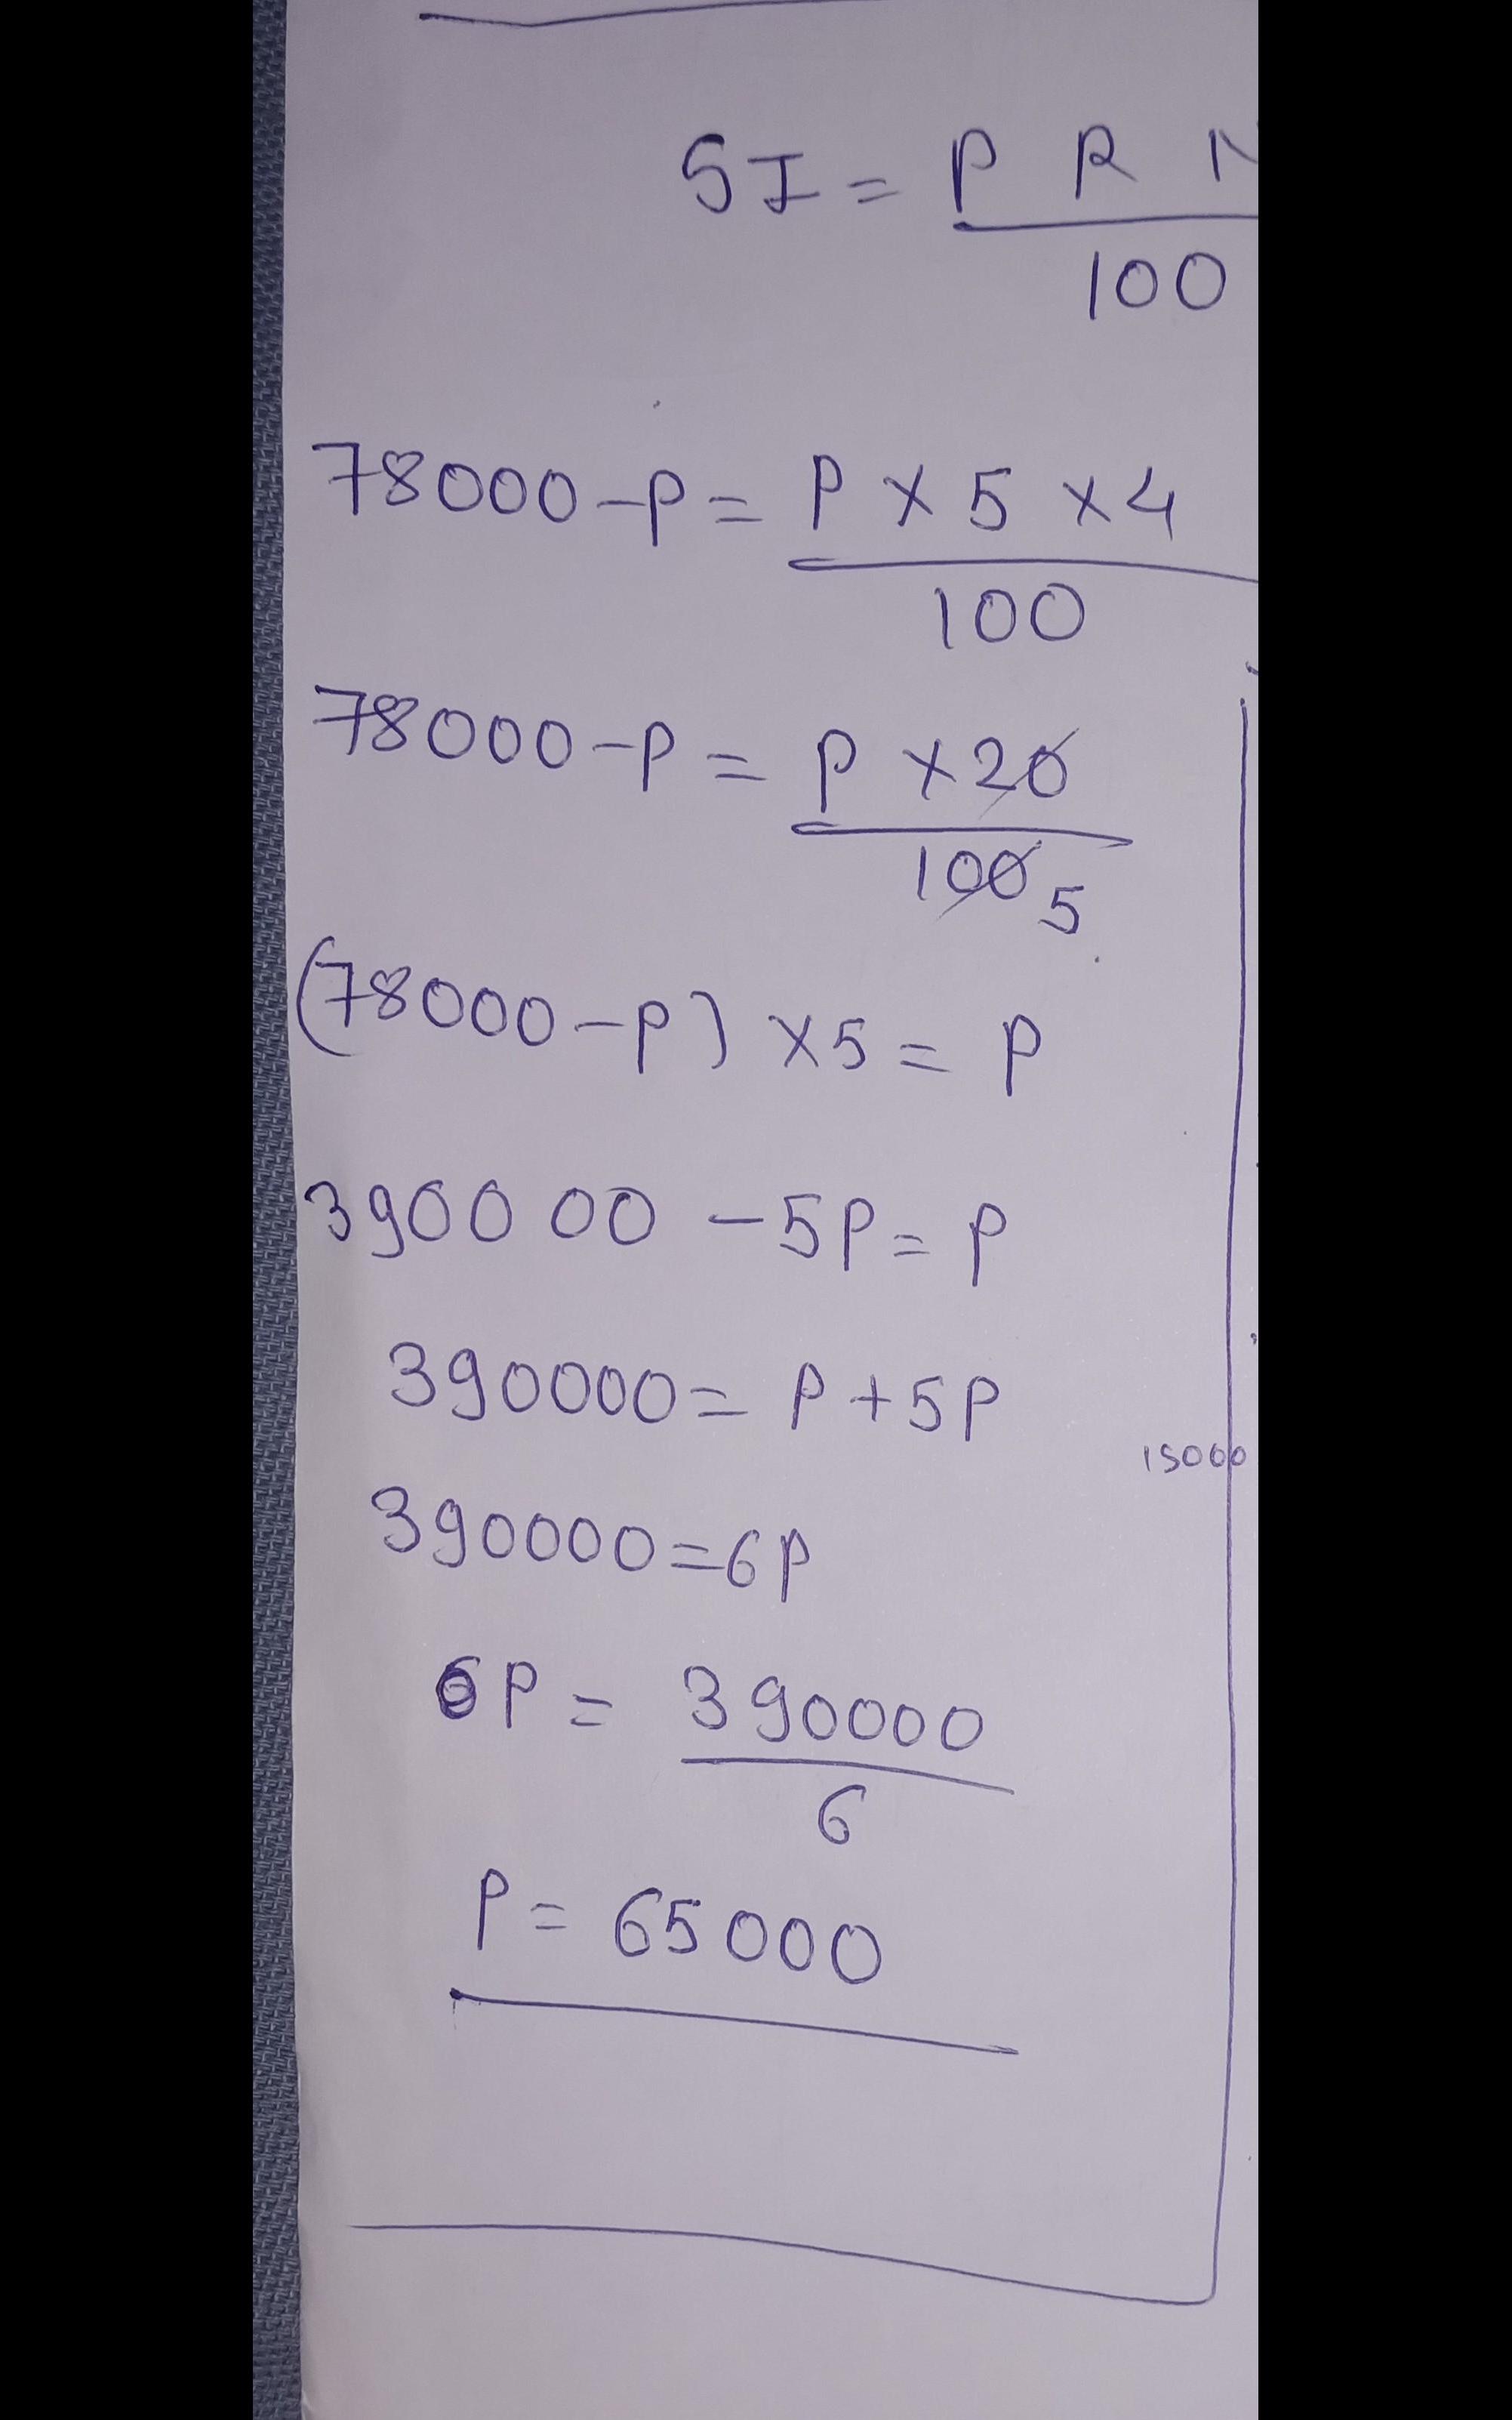 SI = P R N
100
78000 - P = P × 5 × 4
100
78000 - P = P × 20
100 5
(78000 - P) × 5 = P
390000 - 5P = P
390000 = P + 5P
15000
390000 = 6P
6P = 390000
6
P = 65000